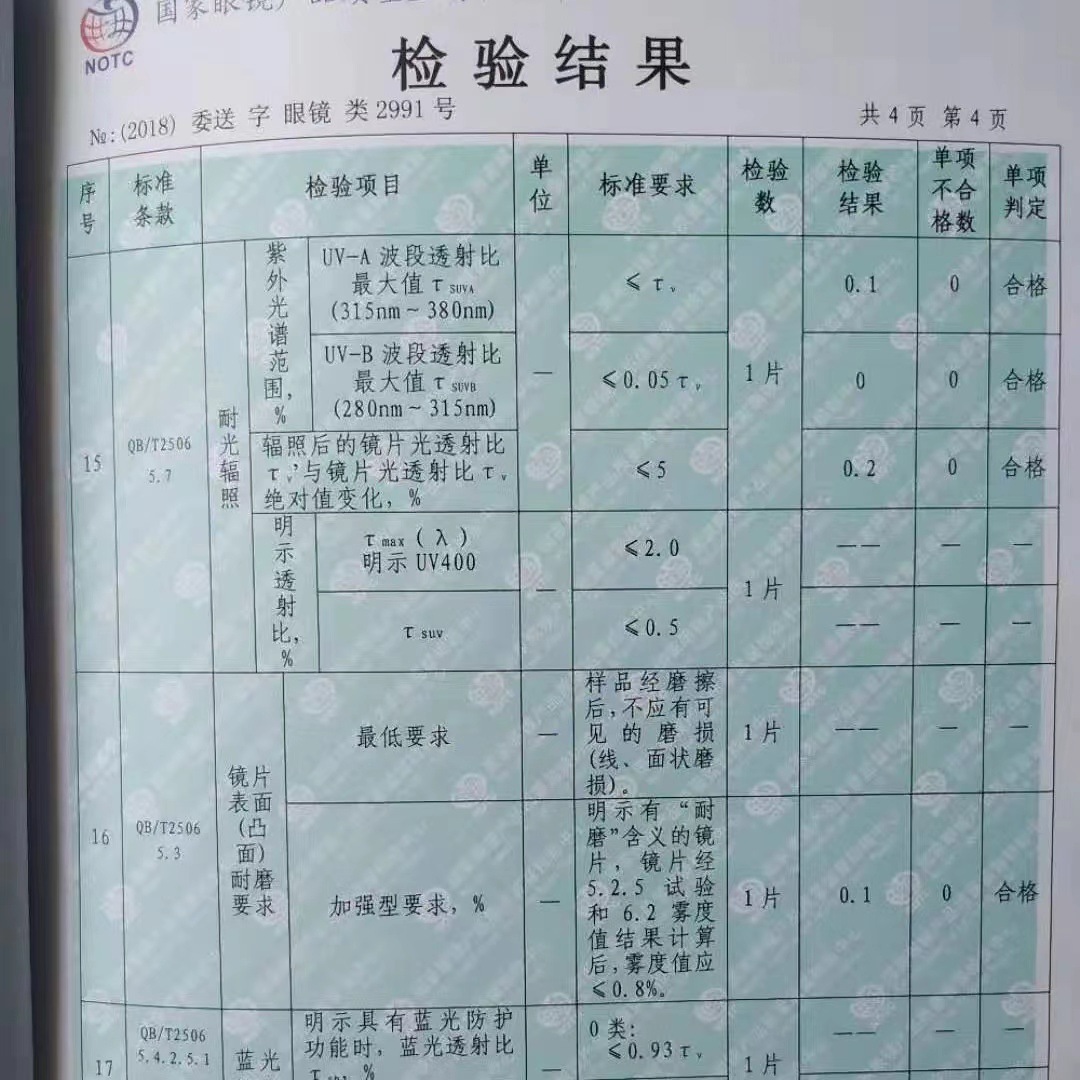 国家眼镜产品质量
NOTC
检验结果
№:(2018) 委送 字 眼镜 类 2991 号
共 4 页 第 4 页
序号 标准条款 检验项目 单位 标准要求 检验数 检验结果 单项不合格数 单项判定
15
QB/T2506
5.7
耐光辐照
紫外光谱范围，%
UV-A 波段透射比
最大值 τSUVA
(315nm～380nm)
≤τv
0.1 0 合格
UV-B 波段透射比
最大值 τSUVB
(280nm～315nm)
—
≤0.05τv
1 片
0 0 合格
辐照后的镜片光透射比
τv'与镜片光透射比 τv
绝对值变化，%
≤5
0.2 0 合格
明示透射比，%
τmax（λ）
明示 UV400
≤2.0
—— — —
—
1 片
τsuv
≤0.5
—— — —
16
QB/T2506
5.3
镜片
表面
(凸
面)
耐磨
要求
最低要求
—
样品经磨擦
后，不应有可
见的磨损
(线、面状磨
损)。
1 片
—— — —
加强型要求，%
—
明示有“耐
磨”含义的镜
片，镜片经
5.2.5 试验
和 6.2 雾度
值结果计算
后，雾度值应
≤0.8%。
1 片
0.1 0 合格
17
QB/T2506
5.4.2.5.1
蓝光
明示具有蓝光防护
功能时，蓝光透射比
—
0 类：
≤0.93τv
1 片
—— — —